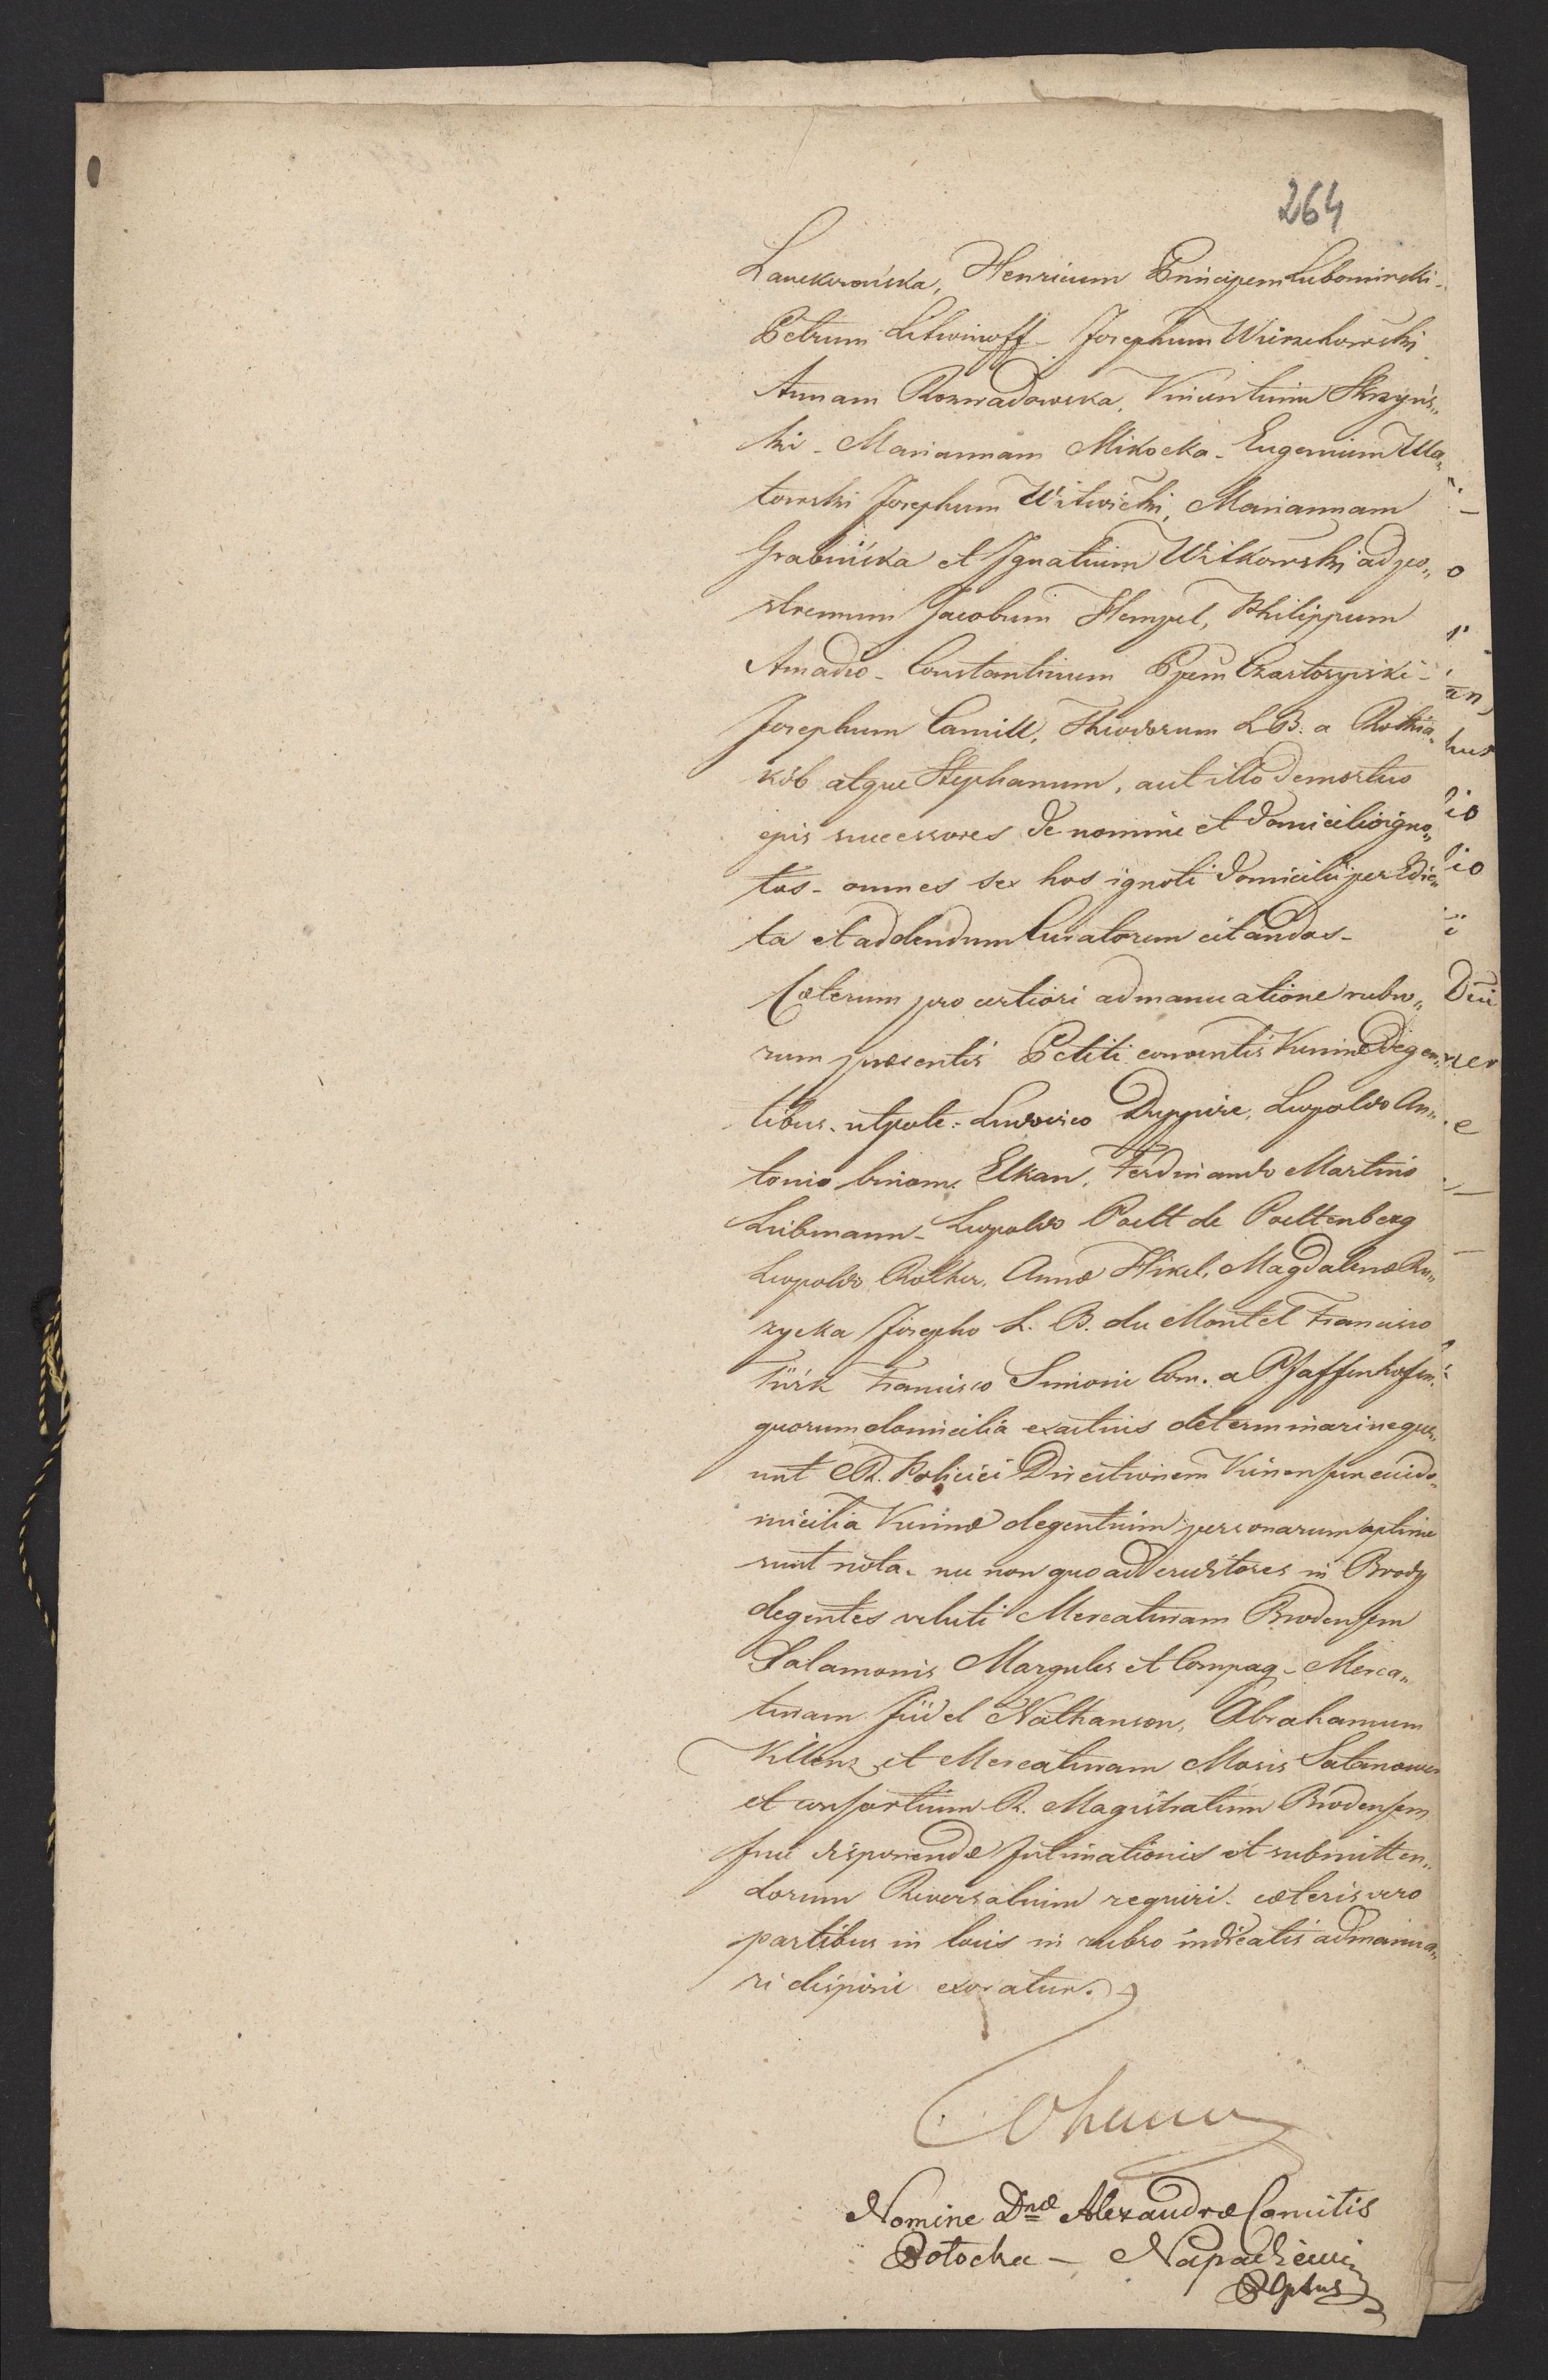 264
Lanckorońska, Henricum Principem Lubomirski -
Petrum Litwinoff - Josephum Wierzchowski
Annam Rozwadowska, Vincentium Skrzyńs„
ki - Mariannam Mikocka - Eugenium Ula„
towski Josephum Witwicki, Mariannam
Grabińska et Ignatium Witkowski ad po„
stremum Jacobum Hempel, Philippum
Amadio - Constantinum Ppem Czartoryiski -
Josephum Camill, Theodorum L.B. a Rothia„
kób atque Stephanum, aut illo demortuo
ejus successores de nomine et domicilio igno„
tos - omnes sex hos ignoti domicilii per Edic„
ta et ad dendum Curatorem citandos -
Cæterum pro certiori admanuatione rubro„
rum præsentis Petiti conventis Viennæ degen„
tibus - utpote: Ludovico Duppire, Leopoldo An„
tonio binom. Elkan, Ferdinando Martino
Liebmann - Leopoldo Poelt de Poeltenberg
Leopoldo Rother, Annæ Hikel, Magdalenæ Ru„
zycka Josepho L. B. du Montel Francisco
Türk Francisco Simoni Com. a Pfaffenhofen:
quorum domicilia exactius determinari neque„
unt C.R. Policiei Directionem Viennensem cui do„
micilia Viennæ degentium personarum optime
sunt nota - nec non quo ad creditores in Brody
degentes veluti Mercaturam Brodensem
Salamonis Margules et Compag. - Merca„
turam Jüdel Nathanson, Abrahamum
et Mercaturam Mosis Satanower
et consortium R. Magistratum Brodensem
fine disponendæ Intimationis et submitten„
dorum Reversalium requiri - cæteris vero
partibus in locis in rubro indicatis admanua„
ri disponi exoratur.
Nomine Dnæ Alexandræ Comitis
Potocka -
Plptus